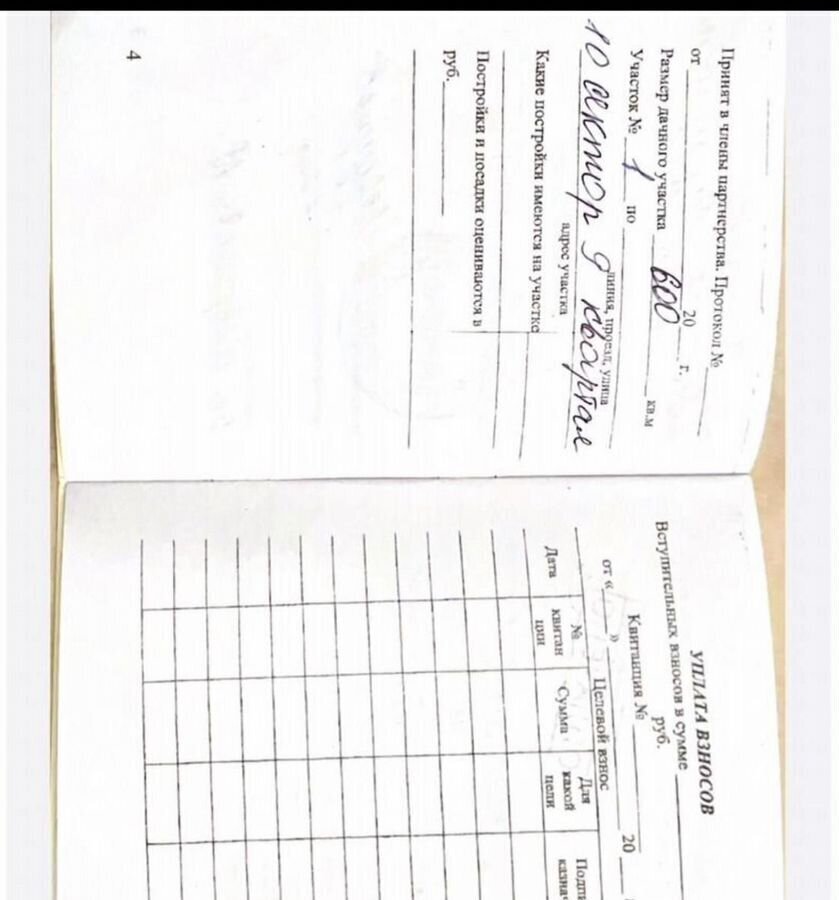 Принят в члены партнерства. Протокол №
от 20 г.
Размер дачного участка 600 кв.м
Участок № 1 по
линия, проезд, улица
10 сектор 9 квартал
адрес участка
Какие постройки имеются на участке
Постройки и посадки оцениваются в
руб.
4
УПЛАТА ВЗНОСОВ
Вступительных взносов в сумме
руб.
Квитанция №
от « » 20
Целевой взнос
Дата
№ квитан
ции
Сумма
Для
какой
цели